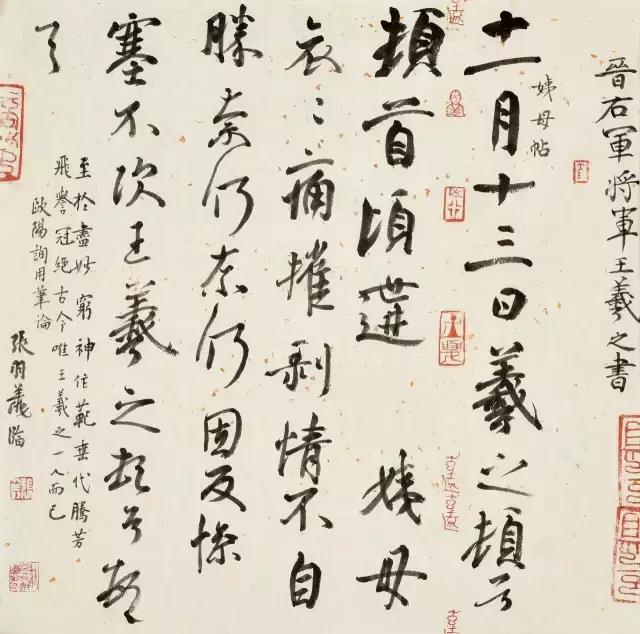 晉右軍將軍王羲之書
姨母帖
十一月十三日羲之頓首
頓首頃遘 姨母
哀〻痛摧剥情不自
勝奈何奈何因反慘
塞不次王羲之頓首頓
首
至於盡妙窮神作範垂代騰芳
飛譽冠絕古今唯王羲之一人而已
歐陽詢用筆論
張羽臨